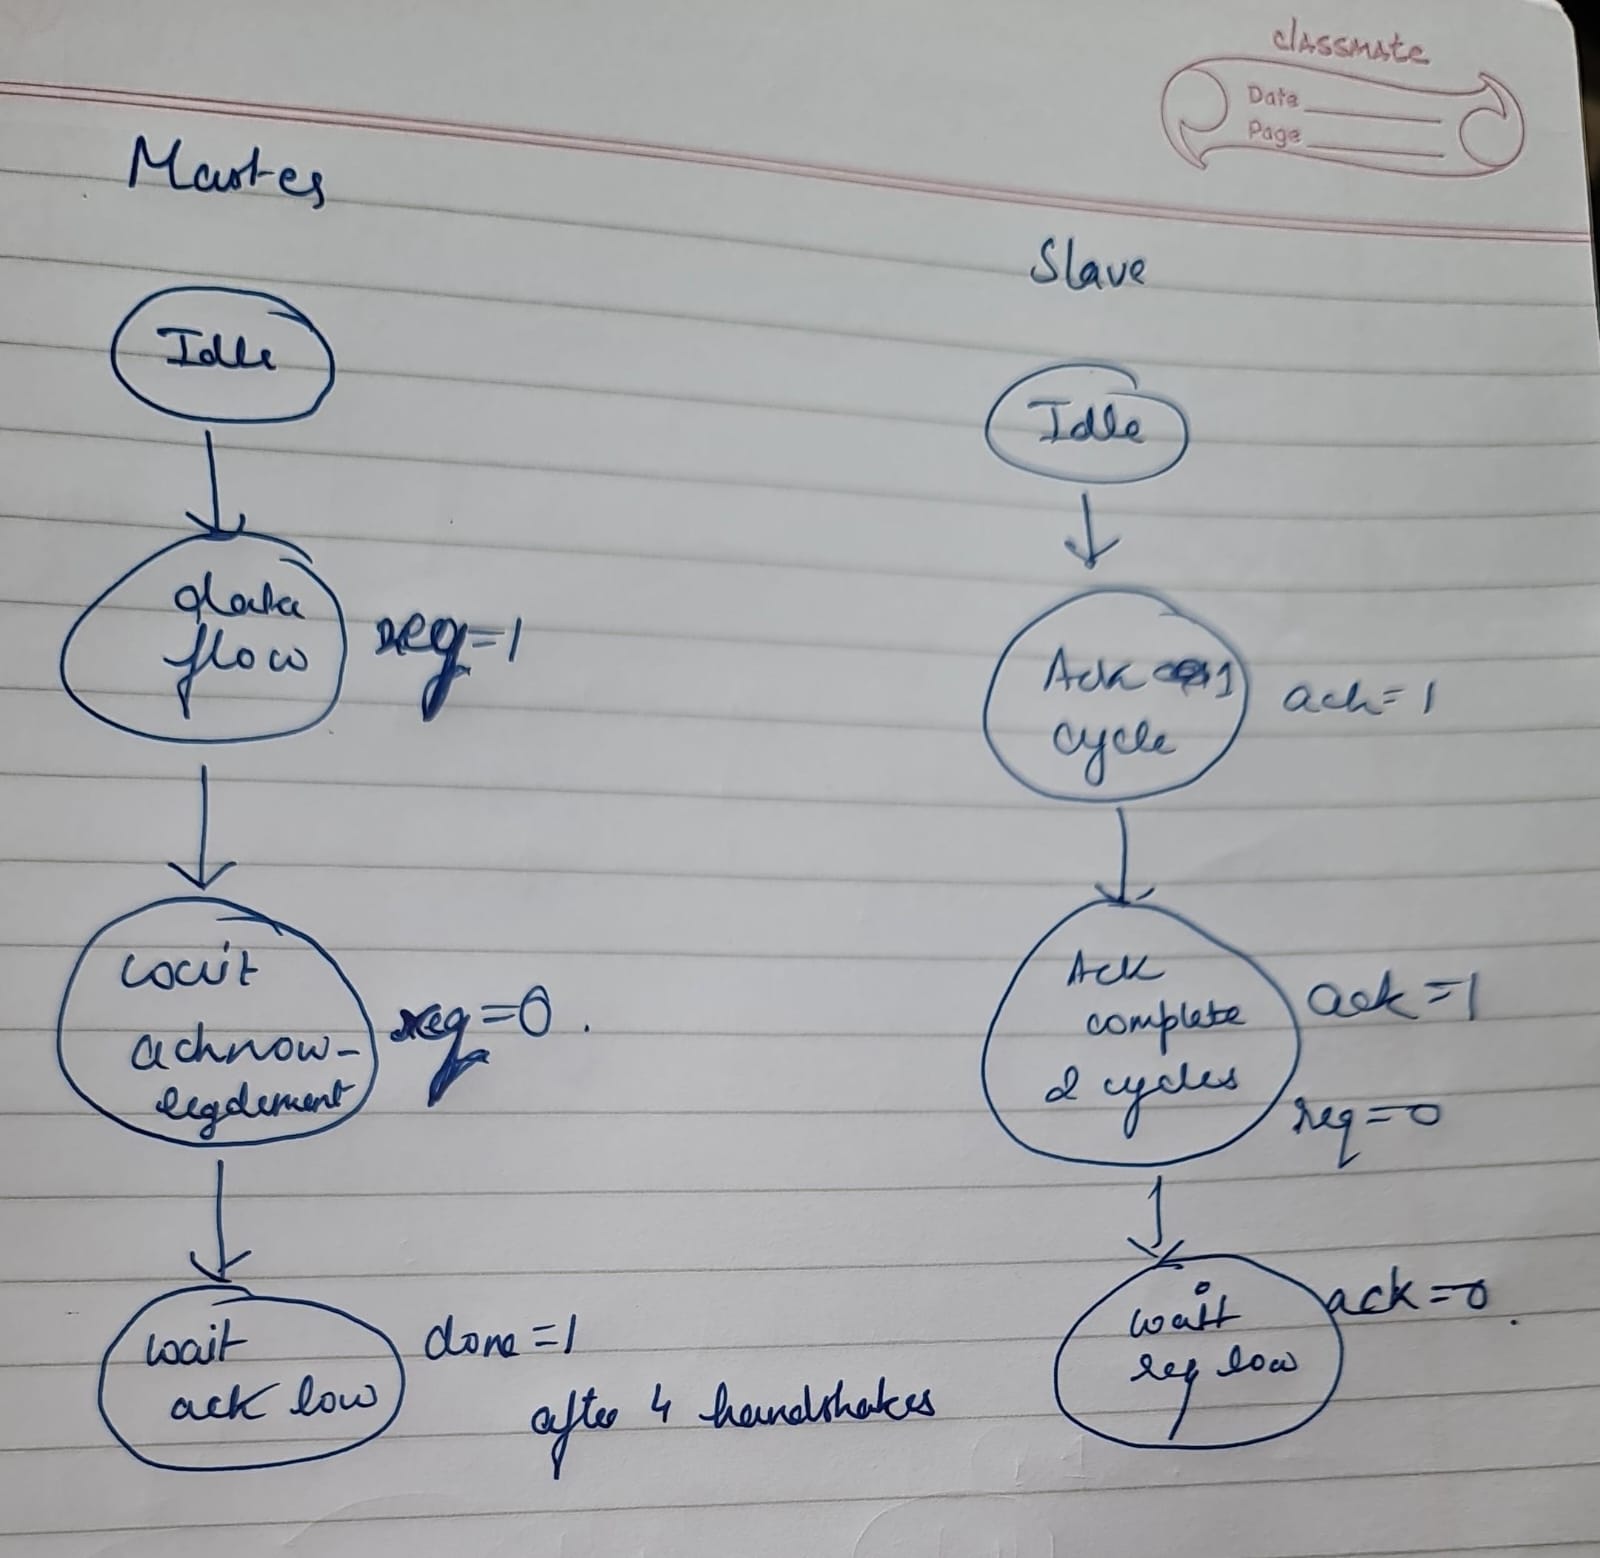 classmate
Date
Page
Master
Slave
Idle
data
flow
req=1
wait
acknow-
legdement
req=0.
wait
ack low
done=1
after 4 handshakes
Idle
Ack 1
cycle
ack=1
Ack
complete
2 cycles
ack=1
req=0
wait
req low
ack=0.